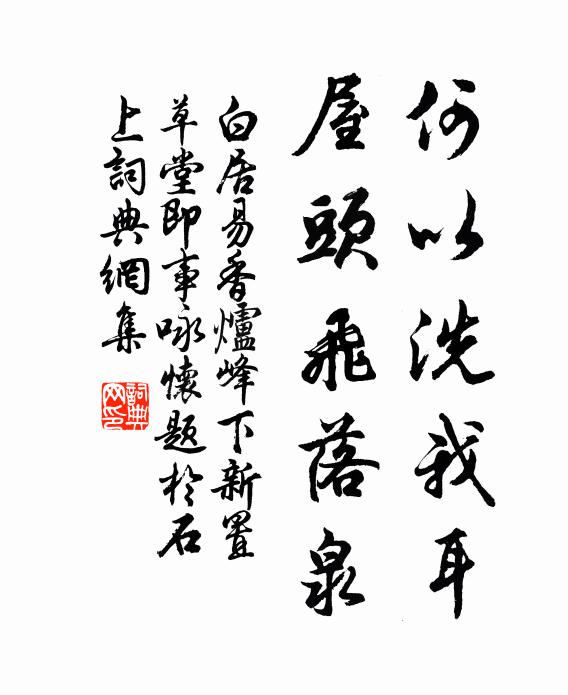 何以洗我耳
屋頭飛落泉
白居易香爐峰下新置
草堂即事咏懷題於石
上詞典網集
詞典网印